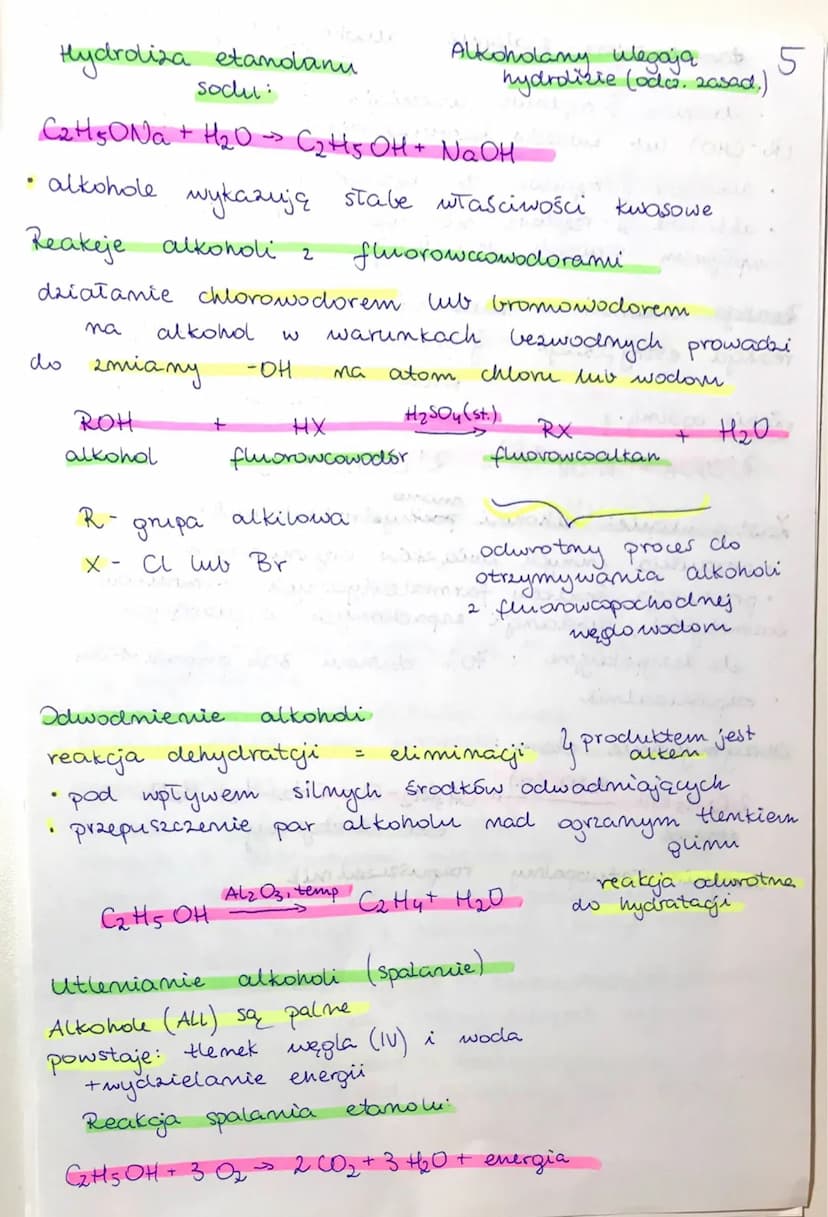 5
Hydroliza etanolanu
sodu:
Alkoholany ulegają
hydrolizie (odcz. zasad.)
C₂H₅ONa + H₂O → C₂H₅OH + NaOH
• alkohole wykazują słabe właściwości kwasowe
Reakcje alkoholi z fluorowcowodorami
działanie chlorowodorem lub bromowodorem
na alkohol w warunkach bezwodnych prowadzi
do zmiany -OH na atom chloru lub wodoru
ROH + HX H₂SO₄(st.) → RX + H₂O
alkohol fluorowcowodór fluorowcoalkan
R - grupa alkilowa
X - Cl lub Br
odwrotny proces do
otrzymywania alkoholi
z fluorowcopochodnej
węglowodoru
Odwodnienie alkoholi
reakcja dehydratcji = eliminacji } produktem jest
alken
• pod wpływem silnych środków odwadniających
• przepuszczenie par alkoholu nad ogrzanym tlenkiem
glinu
C₂H₅OH Al₂O₃, temp → C₂H₄ + H₂O
reakcja odwrotna
do hydratacji
Utlenianie alkoholi (spalanie)
Alkohole (ALL) są palne
powstaje: tlenek węgla (IV) i woda
+ wydzielanie energii
Reakcja spalania etanolu:
C₂H₅OH + 3 O₂ → 2 CO₂ + 3 H₂O + energia